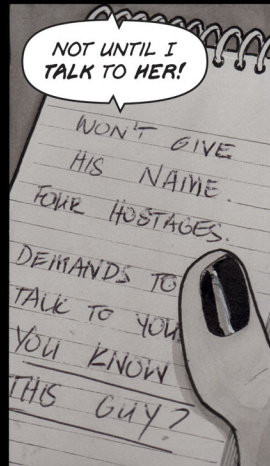 NOT UNTIL I
TALK TO HER!
WON'T GIVE
HIS NAME.
FOUR HOSTAGES.
DEMANDS TO
TALK TO YOU
YOU KNOW
THIS GUY?